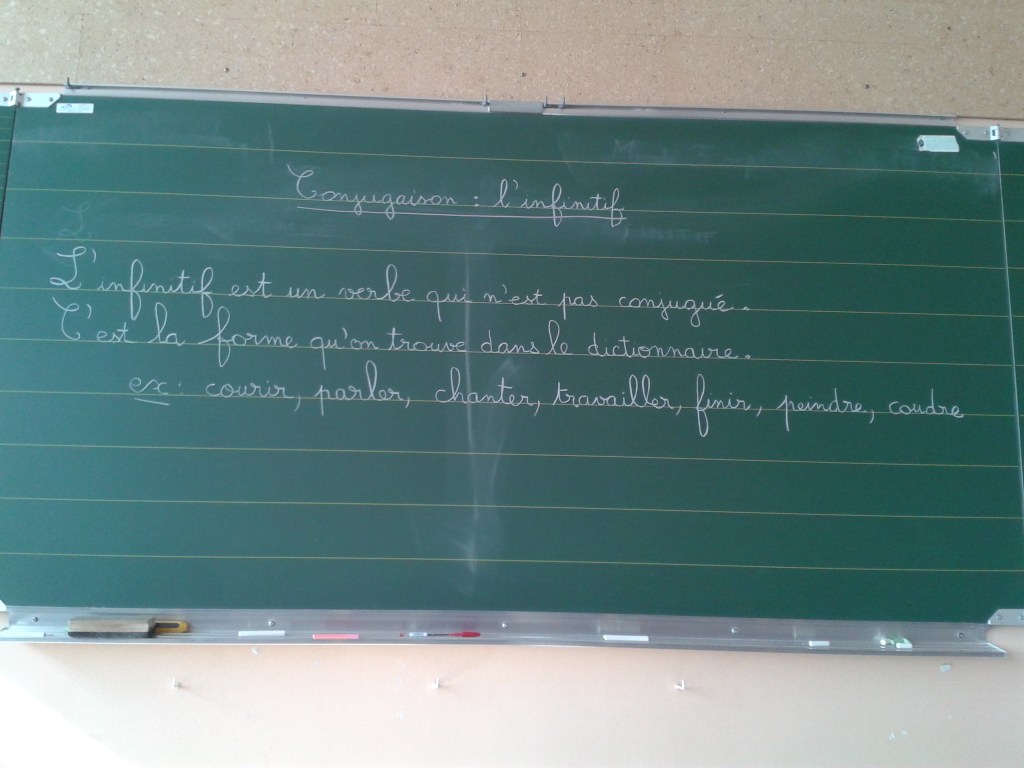 Conjugaison : l'infinitif
L'infinitif est un verbe qui n'est pas conjugué.
C'est la forme qu'on trouve dans le dictionnaire.
ex: courir, parler, chanter, travailler, finir, peindre, coudre